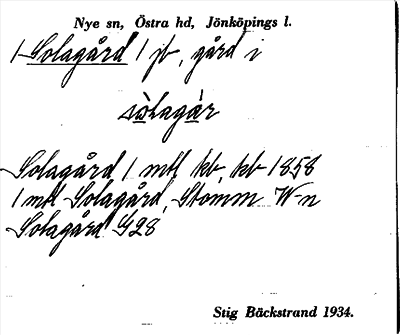 Nye sn, Östra hd, Jönköpings l.
1 Solagård 1 jb, gård i
sòlagàr
Solagård 1 mtl kb, kb 1858
1 mtl Solagård, Stomm W-n
Solagård G28
Stig Bäckstrand 1934.